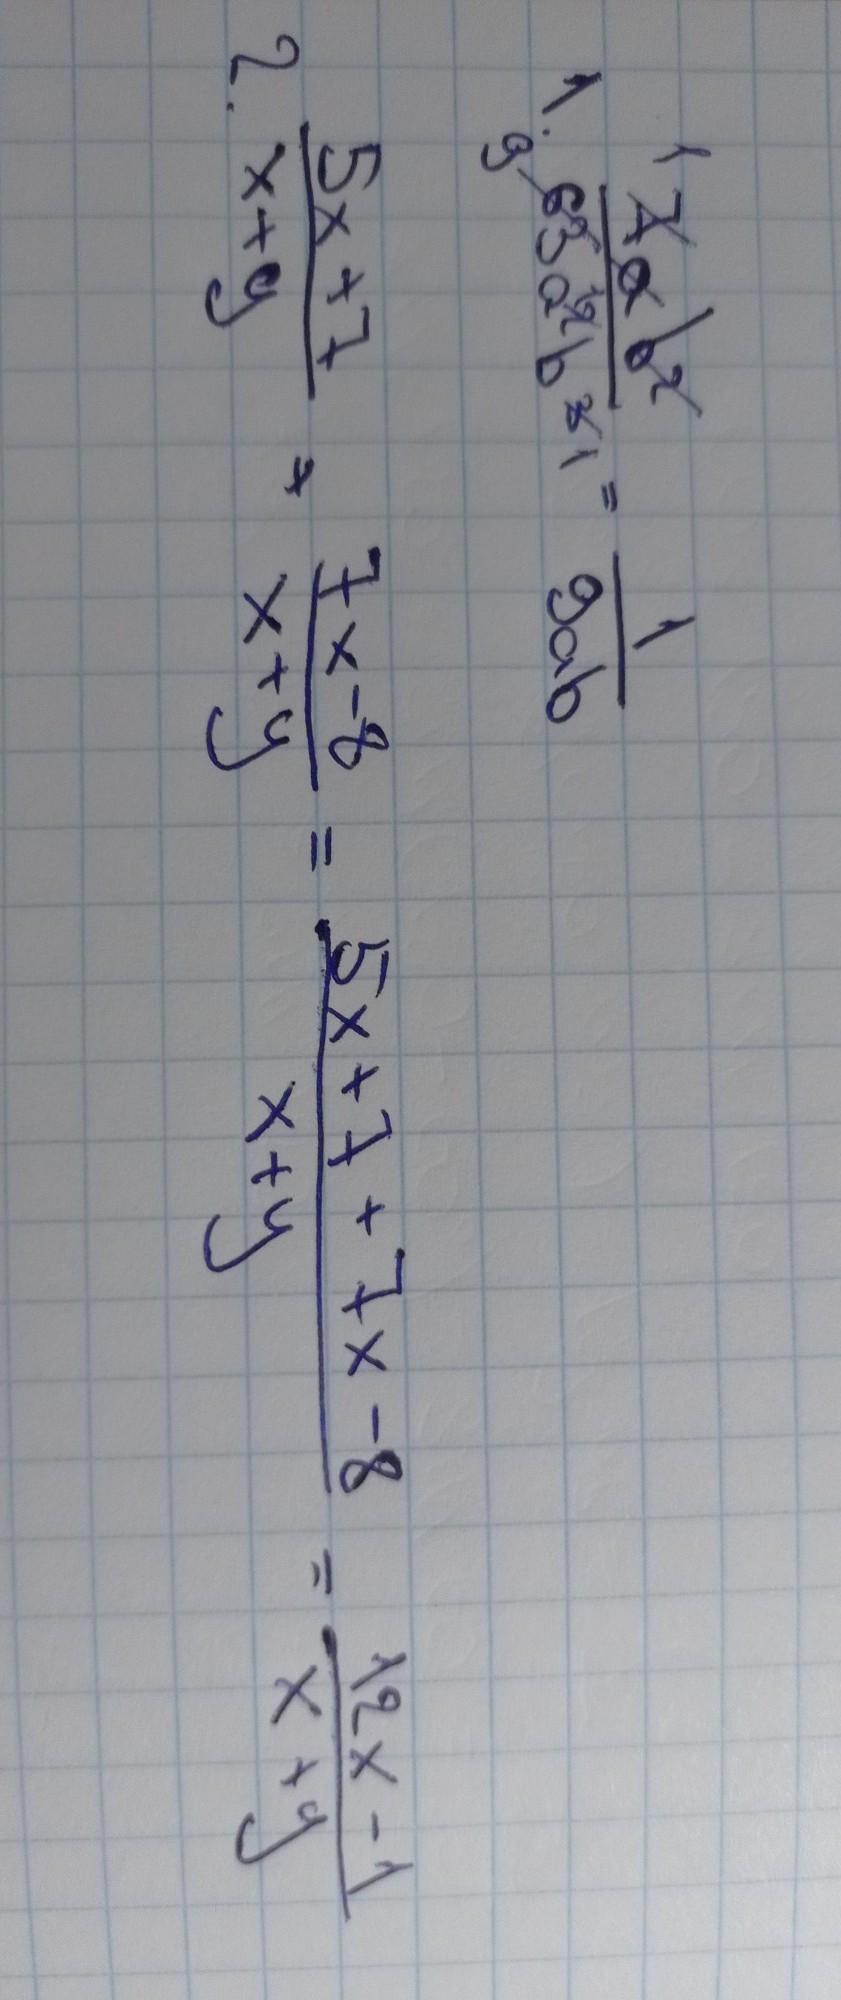 1. 7ab² / 63a²b³ = 1 / 9ab
2. 5x+7 / x+y + 7x-8 / x+y = 5x+7+7x-8 / x+y = 12x-1 / x+y